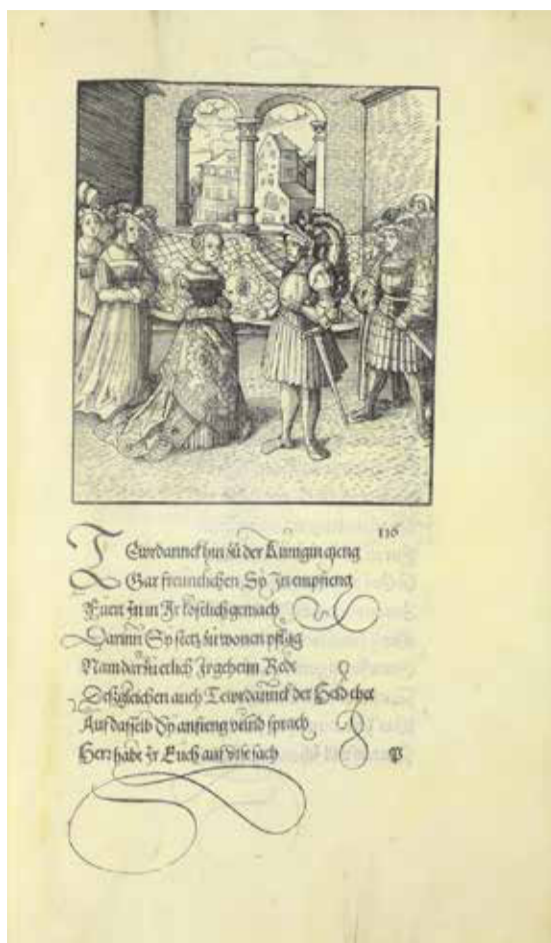 116
Tewrdannck hin zů der Künigin gieng
Gar freuntlichen Sy In empfieng
Fuert In in Ir kostlich gemach
Darinn Sy stetz zů wonen pflag
Nam darzů etlich Ir geheim Rete
Desgleichen auch Tewrdannck der Held thet
Auf dasselb Sy anfieng vnnd sprach
Herr habt Ir Euch auf dise sach
P